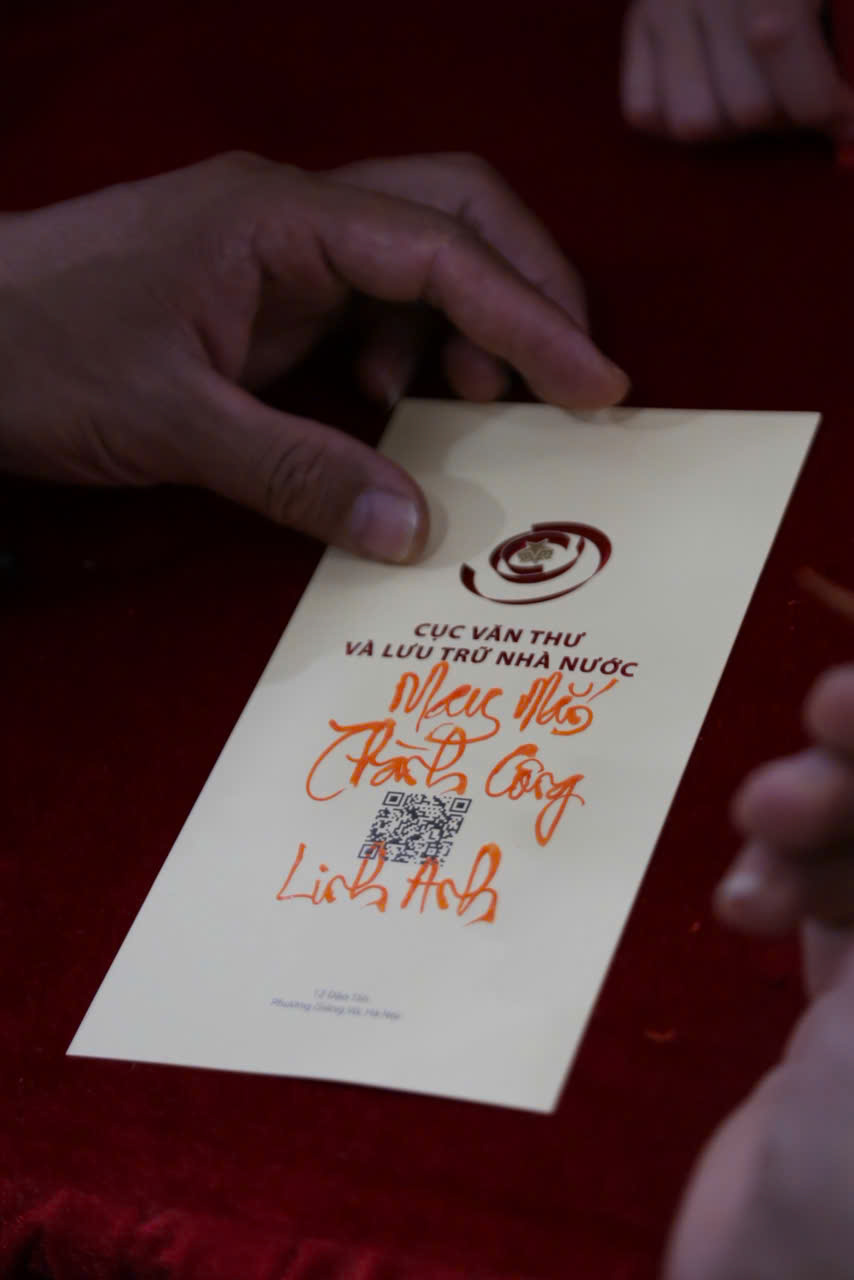 CỤC VĂN THƯ
VÀ LƯU TRỮ NHÀ NƯỚC
May Mắn
Thành Công
Linh Anh
12 Đào Tấn
Phường Giảng Võ, Hà Nội